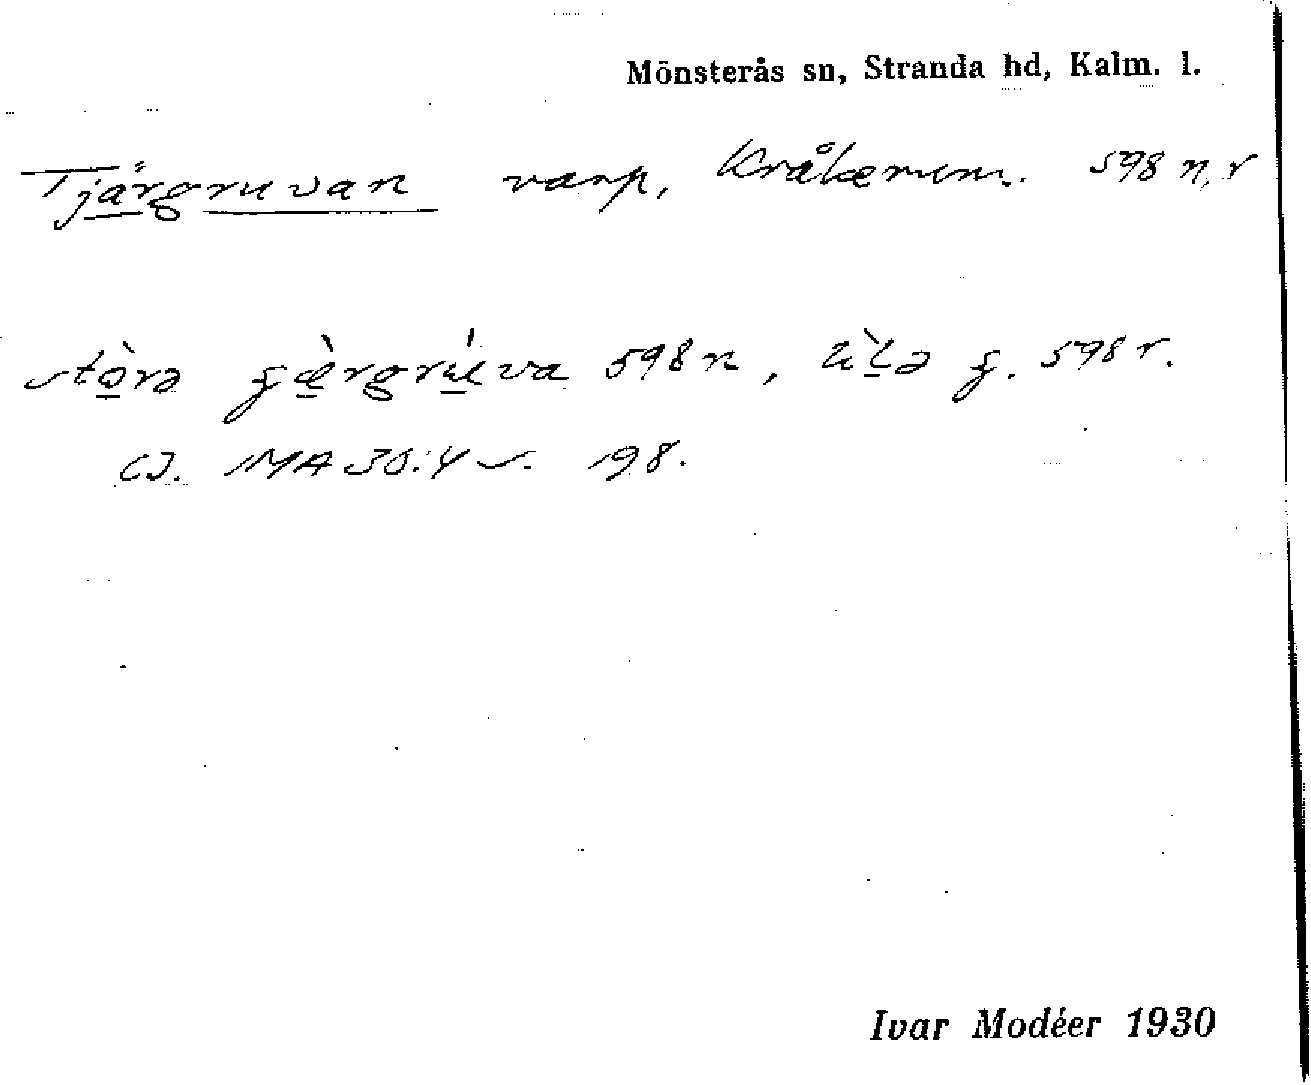 Mönsterås sn, Stranda hd, Kalm. l.
Tjärgruvan varp, Kråkerum. 598 n, r
stòrə ʃæ̀rgrúva 598 n, lìlə ʃ. 598 r.
CJ. MA 30:4 s. 198.
Ivar Modéer 1930